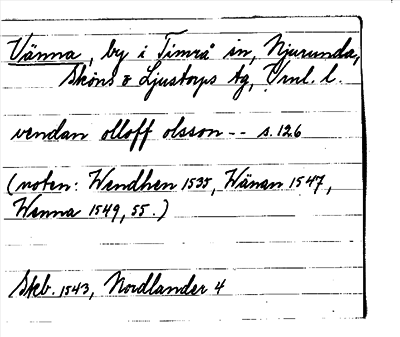 Vänna, by i Timrå sn, Njurunda,
Sköns & Ljustorps tg, Vrnl. l.
vendan olloff olsson -- s. 126
(noten: Wendhen 1535, Wänan 1547,
Wenna 1549, 55.)
Skb. 1543, Nordlander 4